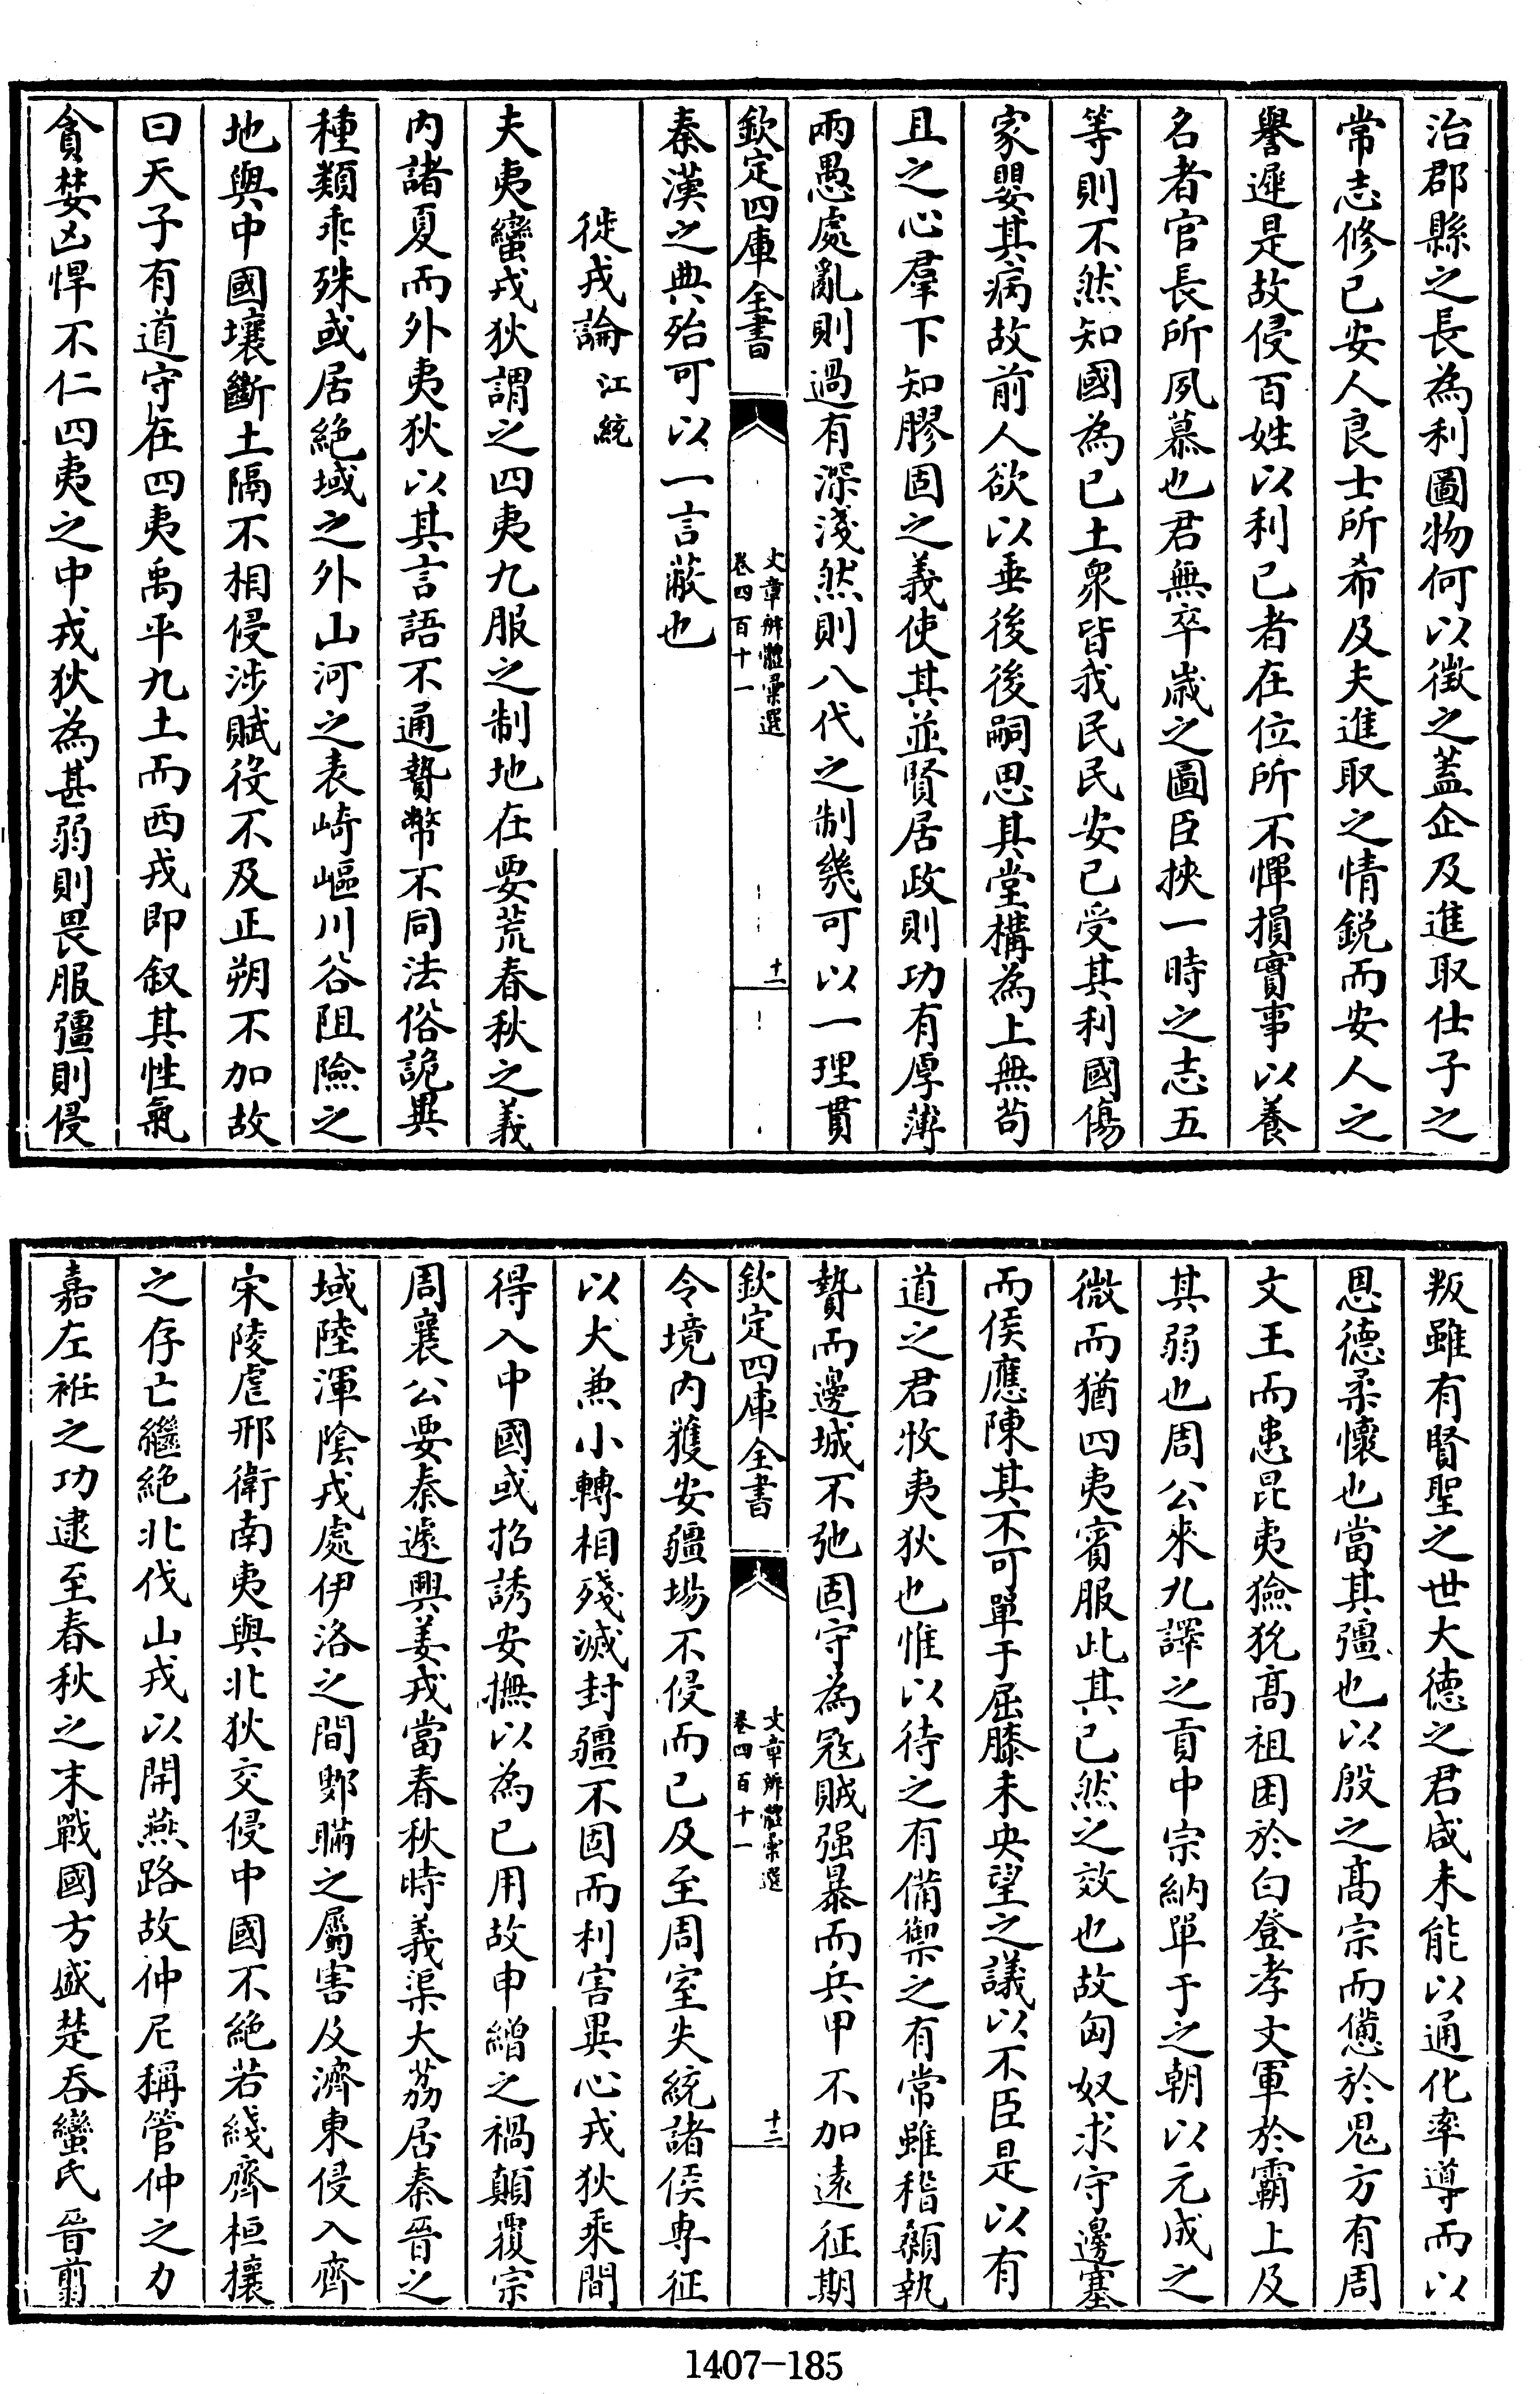 治郡縣之長為利圖物何以徴之蓋企及進取仕子之
常志修己安人良士所希及夫進取之情鋭而安人之
譽遲是故侵百姓以利己者在位所不憚損實事以養
名者官長所夙慕也君無卒歳之圖臣挾一時之志五
等則不然知國為己土衆皆我民民安己受其利國傷
家嬰其病故前人欲以垂後後嗣思其堂構為上無茍
且之心羣下知膠固之義使其並賢居政則功有厚薄
兩愚處亂則過有深淺然則八代之制幾可以一理貫
欽定四庫全書
文章辨體彚選
卷四百十一
十一
秦漢之典殆可以一言蔽也
徙戎論 江統
夫夷蠻戎狄謂之四夷九服之制地在要荒春秋之義
内諸夏而外夷狄以其言語不通贄幣不同法俗詭異
種類乖殊或居絶域之外山河之表崎嶇川谷阻險之
地與中國壤斷土隔不相侵涉賦役不及正朔不加故
曰天子有道守在四夷禹平九土而西戎即叙其性氣
貪婪凶悍不仁四夷之中戎狄為甚弱則畏服彊則侵
叛雖有賢聖之世大德之君咸未能以通化率導而以
恩德柔懷也當其彊也以殷之髙宗而憊於鬼方有周
文王而患昆夷獫狁髙祖困於白登孝文軍於霸上及
其弱也周公來九譯之貢中宗納單于之朝以元成之
微而猶四夷賓服此其已然之效也故匈奴求守邊塞
而侯應陳其不可單于屈膝未央望之議以不臣是以有
道之君牧夷狄也惟以待之有備禦之有常雖稽顙執
贄而邊城不弛固守為寇賊强暴而兵甲不加遠征期
欽定四庫全書
文章辨體彚選
卷四百十一
十二
令境内獲安疆埸不侵而已及至周室失統諸侯專征
以大兼小轉相殘滅封疆不固而利害異心戎狄乘間
得入中國或招誘安撫以為己用故申繒之禍顛覆宗
周襄公要秦遽興姜戎當春秋時義渠大荔居秦晉之
域陸渾陰戎處伊洛之間鄋瞞之屬害及濟東侵入齊
宋陵虐邢衛南夷與北狄交侵中國不絶若綫齊桓攘
之存亡繼絶北伐山戎以開燕路故仲尼稱管仲之力
嘉左袵之功逮至春秋之末戰國方盛楚吞蠻氏晉翦
1407-185